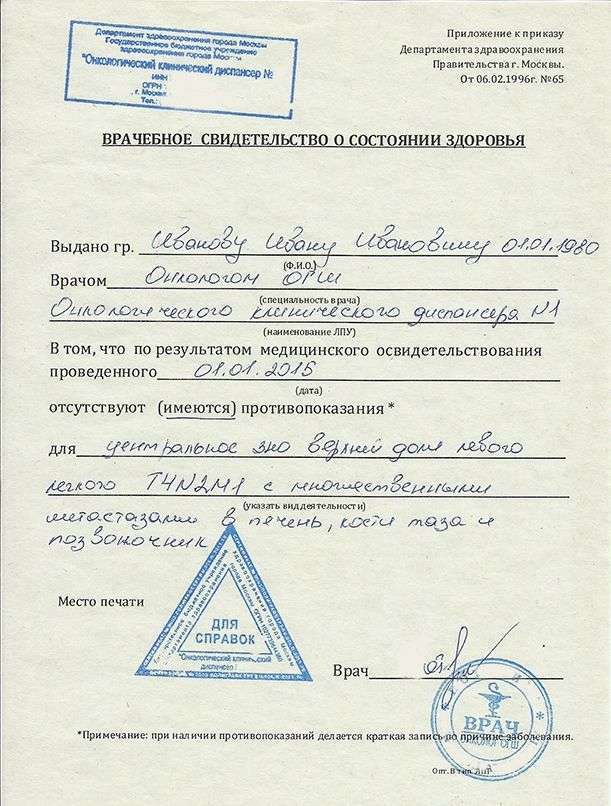 Департамент здравоохранения города Москвы
Государственное бюджетное учреждение
здравоохранения города Москвы
"Онкологический клинический диспансер №
ИНН
ОГРН
, г. Москва
Тел.:
Приложение к приказу
Департамента здравоохранения
Правительства г. Москвы.
От 06.02.1996г. №65
ВРАЧЕБНОЕ СВИДЕТЕЛЬСТВО О СОСТОЯНИИ ЗДОРОВЬЯ
Выдано гр. Иванову Ивану Ивановичу 01.01.1980
(Ф.И.О.)
Врачом Онкологом ОГШ
(специальность врача)
Онкологического клинического диспансера №1
(наименование ЛПУ)
В том, что по результатом медицинского освидетельствования
проведенного 01.01.2015
(дата)
отсутствуют (имеются) противопоказания *
для центральное зно верхней доли левого
легкого T4N2M1 с множественными
(указать вид деятельности)
метастазами в печень, кости таза и
позвоночник
Место печати
ДЛЯ
СПРАВОК
"Онкологический клинический
диспансер
Врач
ВРАЧ
ОНКОЛОГ ОГШ
*Примечание: при наличии противопоказаний делается краткая запись по причине заболевания.